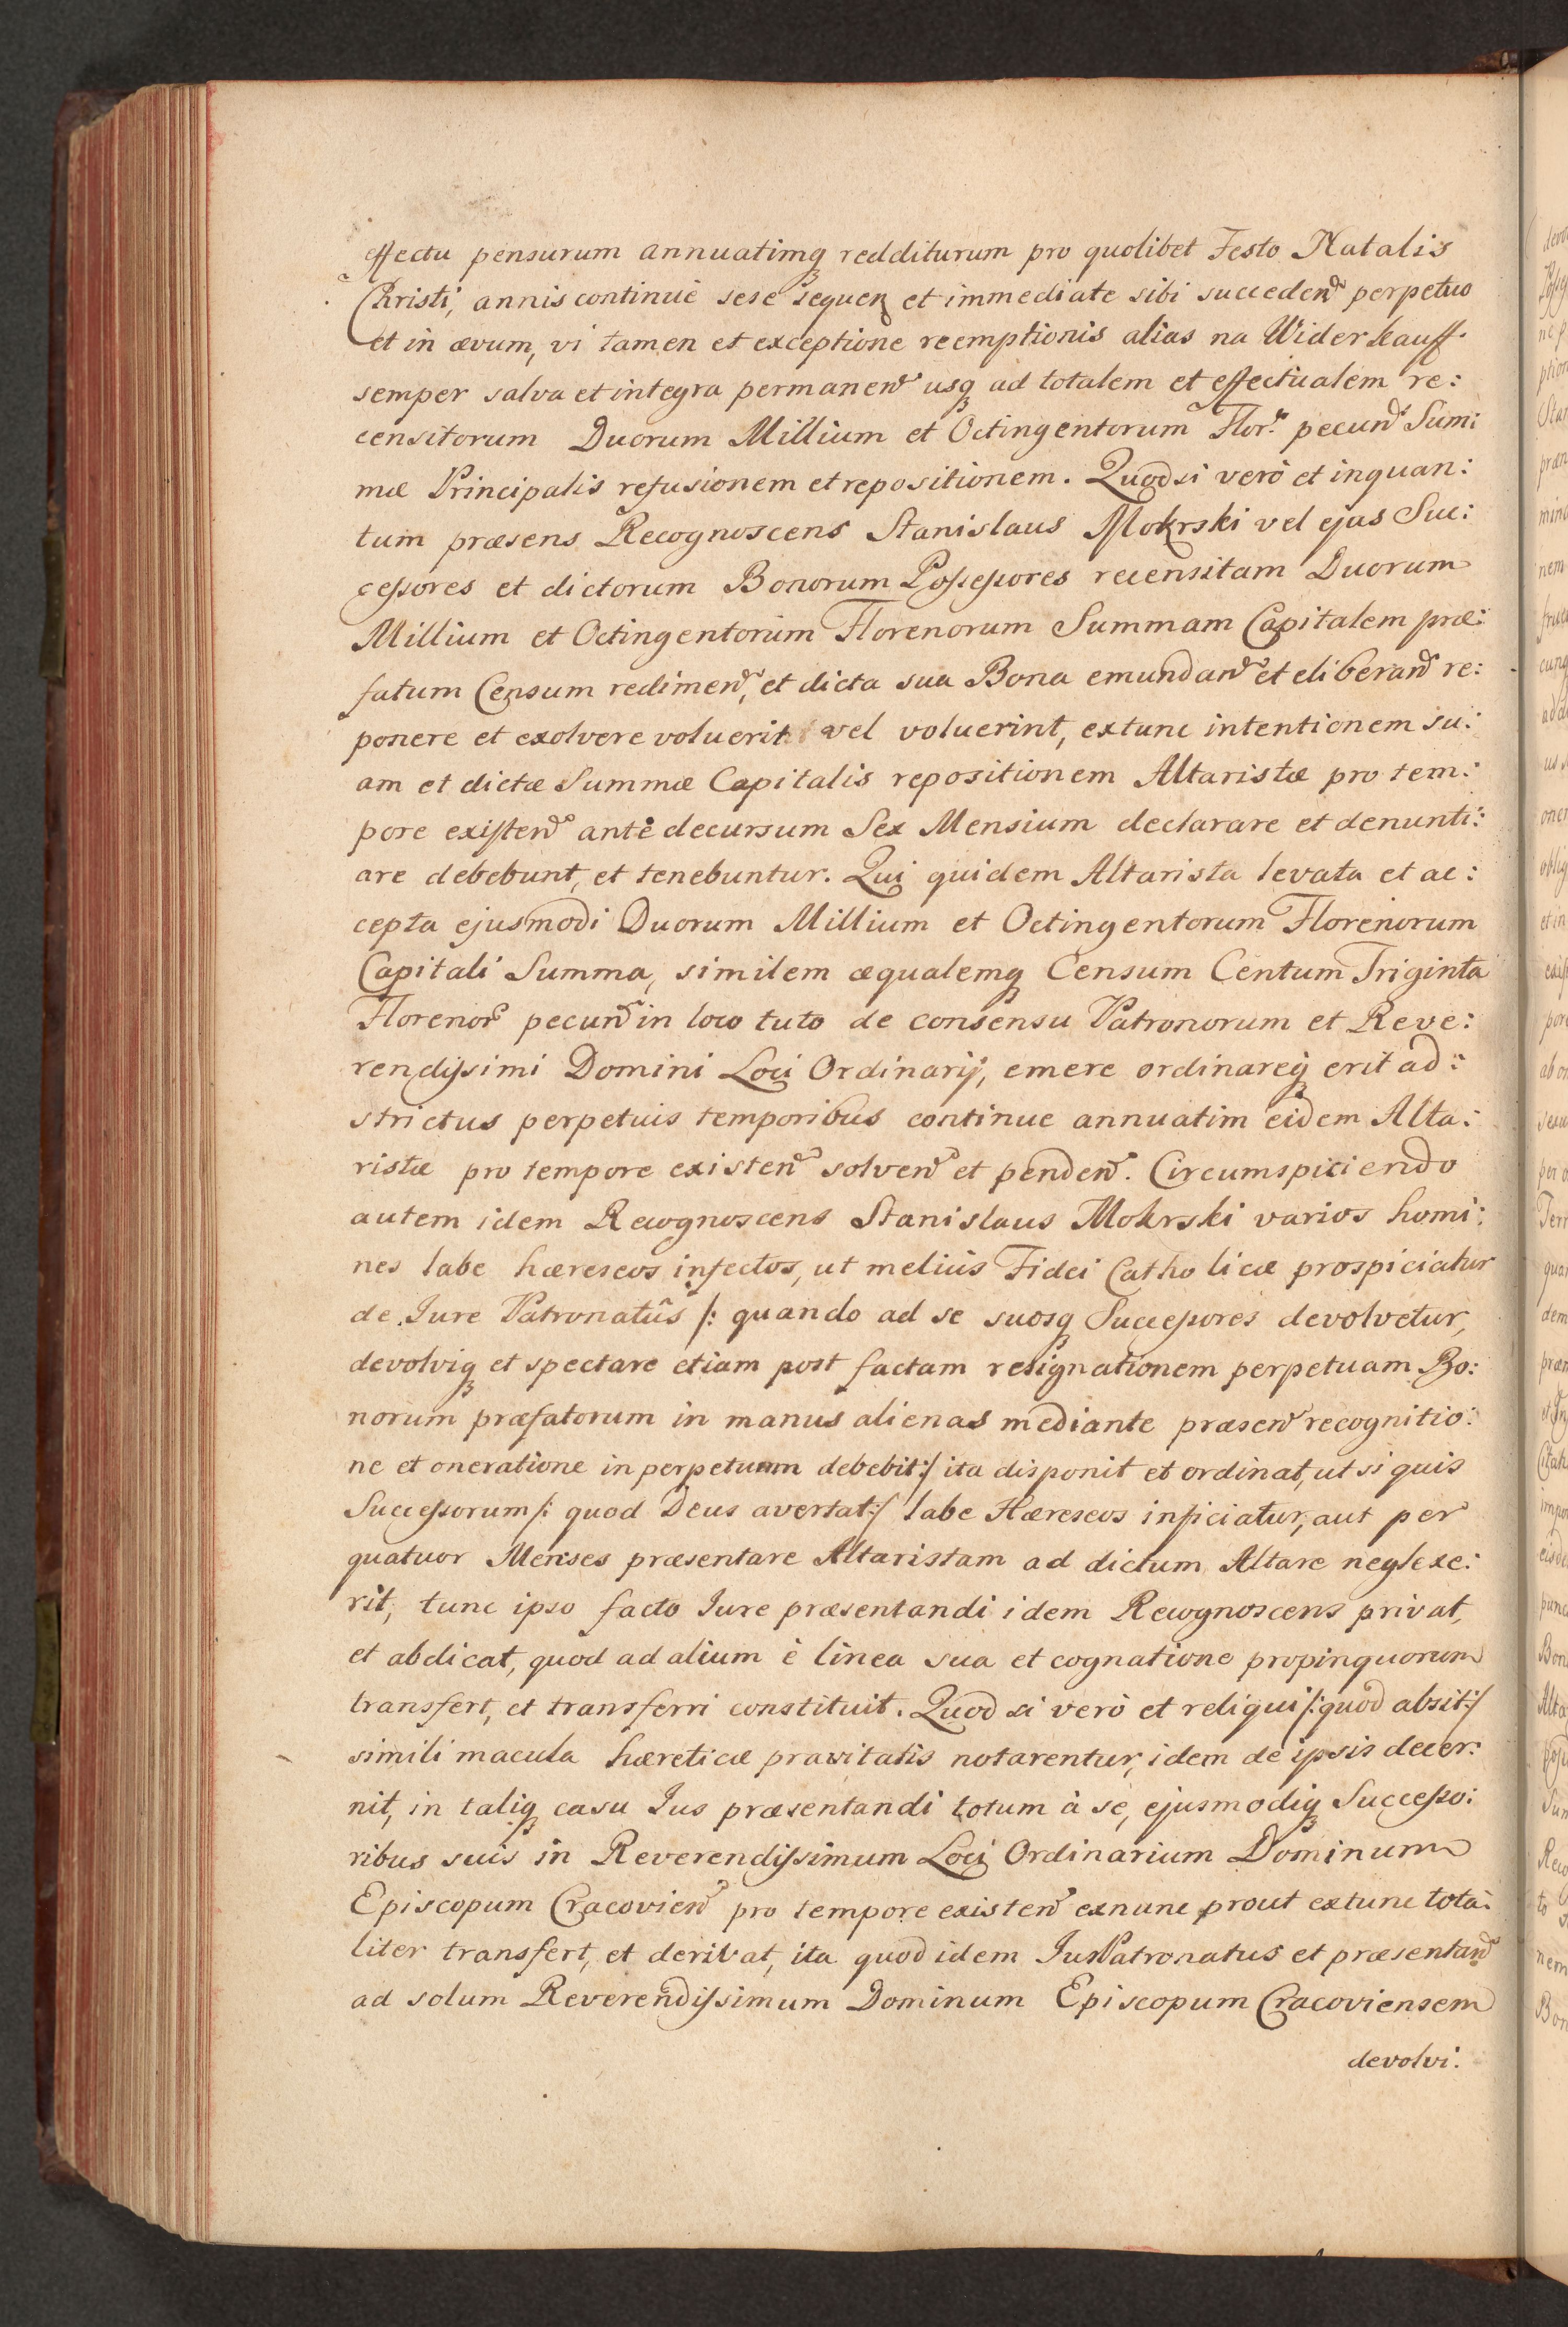 effectu pensurum annuatimq́ꝫ redditurum pro quolibet Festo Natalis
Christi, annis continuè sese sequen et immediate sibi succeden perpetuo
et in ævum, vi tamen et exceptione reemptionis alias na Widerkauff
semper salva et integra permanen usqꝫ ad totalem et effectualem re:
censitorum Duorum Millium et Octingentorum Flor. pecun Sum:
mæ Principalis refusionem et repositionem. Quodsi verò et inquan:
tum præsens Recognoscens Stanislaus Mokrski vel ejus Suc:
cessores et dictorum Bonorum Possessores recensitam Duorum
Millium et Octingentorum Florenorum Summam Capitalem præ:
fatum Censum redimen, et dicta sua Bona emundan et eliberan re:
ponere et exolvere voluerit vel voluerint, extunc intentionem su:
am et dictæ Summæ Capitalis repositionem Altaristæ pro tem:
pore existen antè decursum Sex Mensium declarare et denunti:
are debebunt, et tenebuntur. Qui quidem Altarista levata et ac:
cepta ejusmodi Duorum Millium et Octingentorum Florenorum
Capitali Summa, similem æqualemqꝫ Censum Centum Triginta
Florenor pecun in loco tuto de consensu Patronorum et Reve:
rendissimi Domini Loci Ordinarij, emere ordinareqꝫ erit ad:
strictus perpetuis temporibus continue annuatim eidem Alta:
ristæ pro tempore existen solven et penden. Circumspiciendo
autem idem Recognoscens Stanislaus Mokrski varios homi:
nes labe hæreseos infectos, ut meliùs Fidei Catholicæ prospiciatur
de Jure Patronatûs /: quando ad se suosqꝫ Successores devolvetur,
devolviqꝫ et spectare etiam post factam resignationem perpetuam Bo:
norum præfatorum in manus alienas mediante præsen recognitio:
ne et oneratione in perpetuum debebit :/ ita disponit et ordinat, ut si quis
Successorum /: quod Deus avertat :/ labe Hæreseos inficiatur, aut per
quatuor Menses præsentare Altaristam ad dictum Altare neglexe:
rit, tunc ipso facto Jure præsentandi idem Recognoscens privat,
et abdicat, quod ad alium è linea sua et cognatione propinquorum
transfert, et transferri constituit. Quod si verò et reliqui /: quod absit :/
simili macula hæreticæ pravitatis notarentur, idem de ipsis decer:
nit, in taliqꝫ casu Jus præsentandi totum à se, ejusmodiqꝫ Successo:
ribus suis in Reverendissimum Loci Ordinarium Dominum
Episcopum Cracovien pro tempore existen exnunc prout extunc tota:
liter transfert, et derivat, ita quod idem JusPatronatus et præsentan
ad solum Reverendissimum Dominum Episcopum Cracoviensem
devolvi: